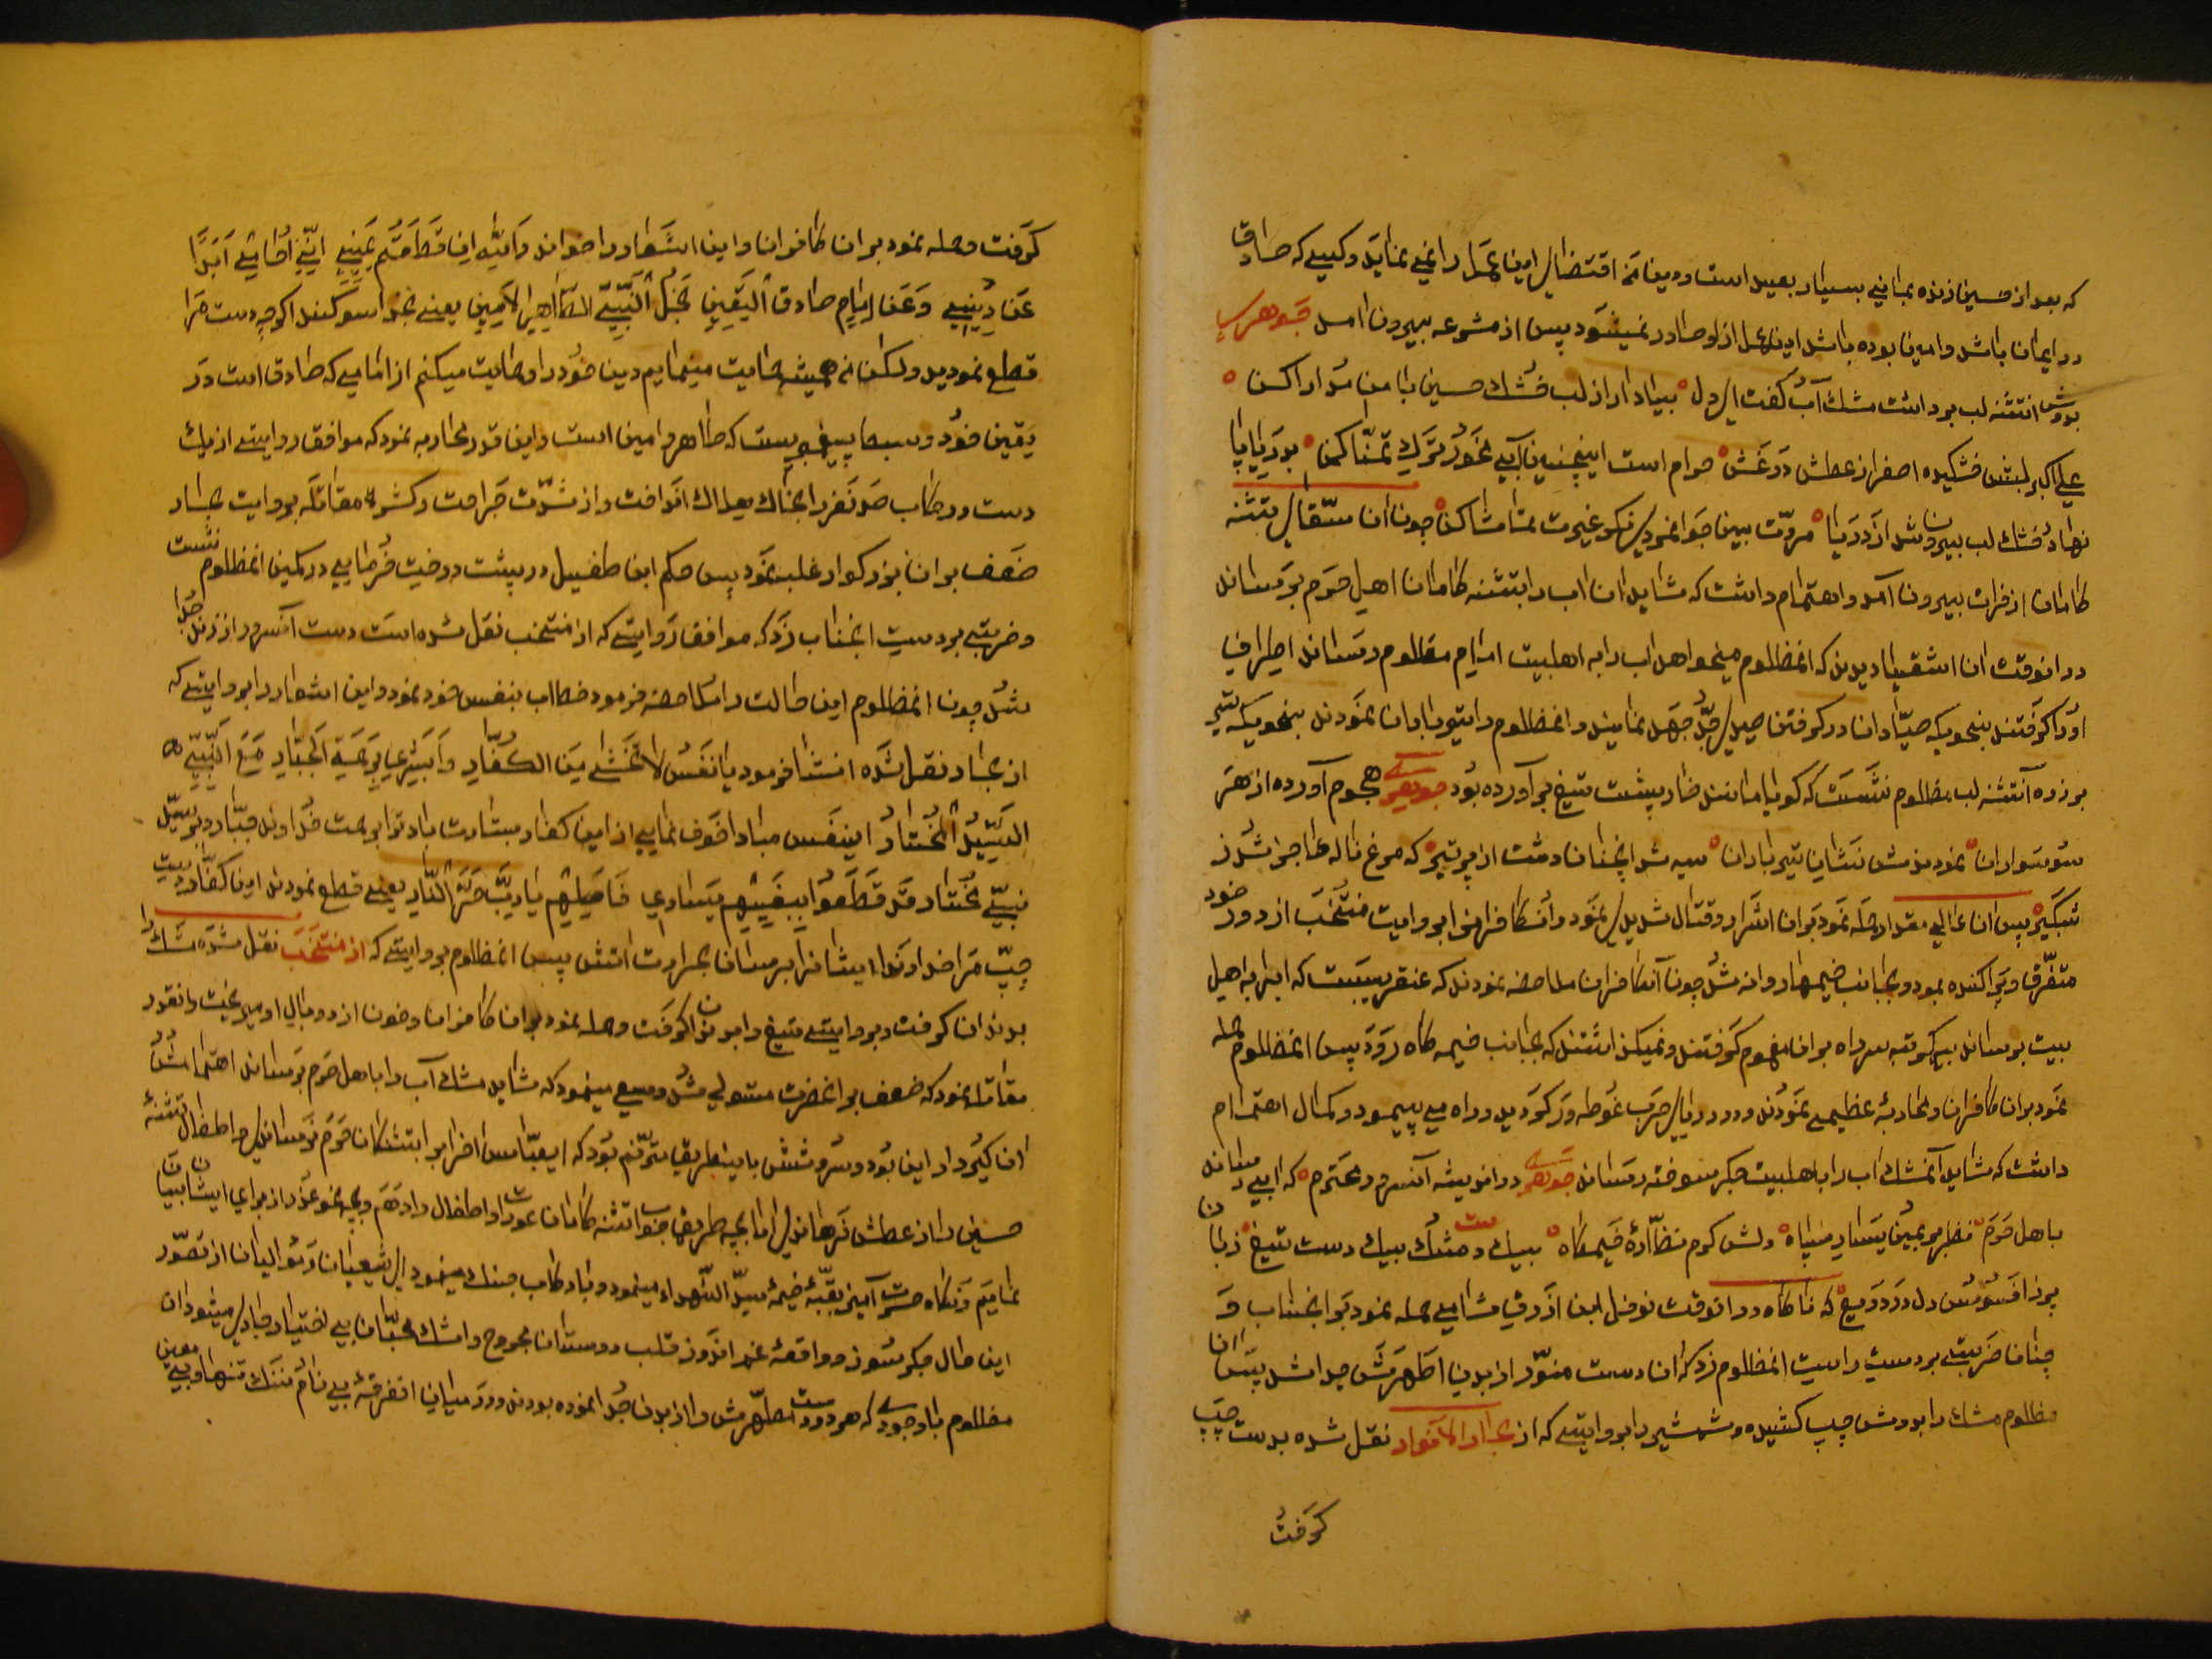 که بعد از حسین زنده بمانی بسیار بعید است و دین من اقتضای این عمل را نمی نماید و کسی که صادق
در ایمان باشد و امین بوده باشد این عمل از او صادر نمیشود پس از مشرعه بیرون آمد جوهری
بدوش انتشنه لب برداشت مشک آب گفت ای دل بیاد آر از لب خشک حسین با من مدارا کن
علی اکبر لبش خشکیده اصغر از عطش در غش حرام است اینچنین آبی بخود ترک تمنا کن بدریا پا
نهاد خشک لب بیرون شد از دریا مروت بین جوانمردی نکو غیرت تماشا کن چون آن سقای تشنه
کامان از فرات بیرون آمد و اهتمام داشت که شاید آن آب را بتشنه کامان اهل حرم برساند
در آنوقت آن اشقیا دیدند که انمظلوم میخواهد آب را به اهلبیت امام مظلوم رساند اطراف
او را گرفتند بنحویکه صیادان در گرفتن صید جد جهد نمایند و انمظلوم را تیرباران نمودند بنحویکه تیر
بر زره آنتشنه لب مظلوم نشست که گویا مانند خارپشت تیغ برآورده بود جوهری هجوم آورده از هر
سو سواران نمودندش نشان تیر باران سیه شد آنچنان دشت از پر تیر که مرغ ناله عاجز شد ز
شبگیر پس آن عالی مقدار حمله نمود بر آن اشرار و قتال شدیدی نمود و آن کافران را بروایت منتخب از دور خود
متفرق و پراکنده نمود و بجانب خیمها روانه شد چون آن کافران ملاحظه نمودند که عنقریبست که آبرا به اهل
بیت برساند بیکرتبه سر راه بر ان مغموم گرفتند و نمیگذاشتند که بجانب خیمه گاه رود پس انمظلوم حمله
نمود بر ان کافران و محاربهٔ عظیمی نمودند و در دریای حرب غوطه ور گردید و راه می پیمود و کمال اهتمام
داشت که شاید آنمشک آب را باهلبیت جگر سوخته رساند جوهری در اندیشه آنسرور محترم که آبی رساند
باهل حرم نظر بر یمین یسار سپاه دلش گرم نظارهٔ خیمگاه بیک دست مشک بیک دست تیغ زبان
پر ز افسوس دل در دریغ که ناگاه در انوقت نوفل ابن ازرق شامی حمله نمود بر آنجناب و
چنان ضربتی بر دست راست انمظلوم زد که ان دست منور از بدن اطهرش جدا شد پس ان
مظلوم مشک را بدوش چپ کشیده و شمشیر را بروایتی که از بحار الانوار نقل شده بدست چپ
گرفت
گرفت و حمله نمود بر ان کافران و این اشعار را خواند وَاللّٰهِ اِن قَطَعتُم یَمینی اِنّی اُحامی اَبَدًا
عَن دینی وَعَن اِمامٍ صادق الیَقینِ نَجلِ النَّبیِّ الطّاهِرِ الاَمینِ یعنی بخدا سوگند اگرچه دست مرا
قطع نمودید ولکن من همیشه حمایت مینمایم دین خود را و حمایت میکنم از امامی که صادق است در
یقین خود و سبط پیغمبریست که طاهر و امین است و این قدر محاربه نمود که موافق روایتی از یک
دست در رکاب صد نفر را بخاک هلاک انداخت و از شدت جراحت و کشرت مقاتله بروایت بحار
ضعف بر ان بزرگوار غلبه نمود پس حکم ابن طفیل در پشت درخت خرمایی در کمین انمظلوم نشست
و ضربتی بر دست انجناب زد که موافق روایتی که از منتخب نقل شده است دست آنسرور از زند جدا
شد چون انمظلوم این حالت را ملاحظه فرمود خطاب بنفس خود نمود و این اشعار را بروایتی که
از بحار نقل شده انشا فرمود یا نَفسُ لا تَخشَی مِنَ الکُفّارِ وَاَبشِری بِرَحمَةِ الجَبّارِ مَعَ النَّبیِّ
السَّیِّدِ المُختار ای نفس مبادا خوف نمایی از این کفار بشارت باد ترا برحمت خداوند جبار و بر سید
نبی مختار قَد قَطَعوا بِبَغیِهِم یَساری فَاَصلِهِم یا رَبِّ حَرَّ النّار یعنی قطع نمودند این کفار دست
چپ مرا خداوندا ایشانرا برسان بحرارت اتش پس انمظلوم بروایتی که از منتخب نقل شده مشک را
بدندان گرفت و بروایتی تیغ را بدندان گرفت و حمله نمود بر ان کافران و خون از دو بال او میریخت و انقدر
مقاتله نمود که ضعف بر انحضرت مستولی شد و سعی مینمود که شاید مشک آب را باهل حرم برساند اهتمامش
ان گیر و دار این بود و سروشش باینطریق مترنم بود که ای عباس آخر آب را بتشنگان حرم نرساندی و اطفال تشنهٔ
حسین را از عطش نرهاندی ایا بچه طریق جواب تشنه کامان عورات و اطفال را دهم و بچه نحو عذر از برای ایشان بیان
نمایم و نگاه حسرت آمیز بقبهٔ خیمهٔ سید الشهداء مینمود و با رکاب جنگ مینمود ای شیعیان و موالیان از تصور
این حال جگر سوز و واقعهٔ غم اندوز قلب دوستان مجروح و اشک محبان بی اختیار جاری میشود ان
مظلوم با وجودی که هر دو دست مطهرش را از بدن جدا نموده بودند و در میان انفرقهٔ بی نام ننگ تنها و بی معین